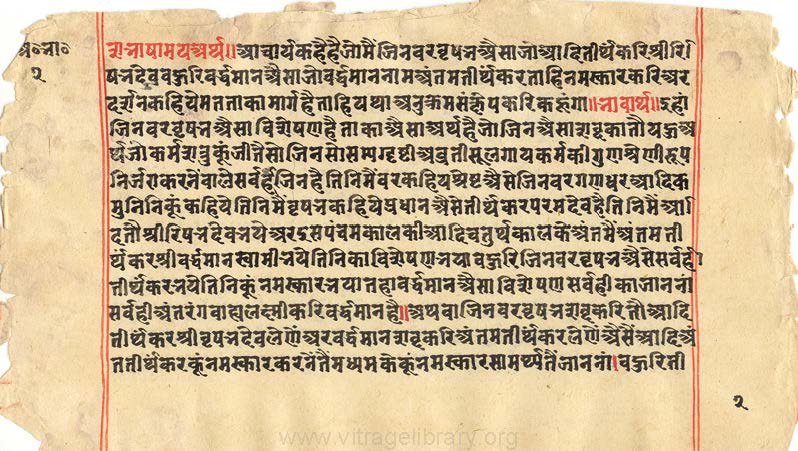 २
शभाषामय अर्थ॥ आचार्य कहै है जो मैं जिनवर वृषभ ऐसा जो आदि तीर्थंकर श्री रि
षभदेव बहुरि वर्द्धमान ऐसा जो वर्द्धमान नाम अंतम तीर्थंकर ताहि नमस्कार करि अर
दर्शन कहिये मत ताका मार्ग है ताहि यथा अनुक्रम संक्षेप करि कहूंगा॥ भावार्थ॥ इहां
जिनवर वृषभ ऐसा विशेषण है ताका ऐसा अर्थ है जो जिन ऐसा शब्द का तौ यहु अ
र्थ जो कर्म शत्रु कूं जीतै सो जिन सो सम्यग्दृष्टी अव्रती सूं लगाय कर्म की गुणश्रेणी रूप
निर्जरा करनें वाले सर्वही जिन है तिनि मैं वर कहिये श्रेष्ट ऐसे जिनवर गणधर आदिक
मुनिनिकूं कहिये तिनि मैं वृषभ कहिये प्रधान ऐसे तीर्थंकर परम देव है तिनि मैं आ
दि तौ श्री रिषभदेव भये अर इस पंचम काल की आदि चतुर्थ काल कै अंत मैं अंतम ती
र्थंकर श्री वर्द्धमान स्वामी भये तिनि का विशेषण भया बहुरि जिनवर वृषभ ऐसे सर्वही
तीर्थंकर भये तिनिकूं नमस्कार भया तहां वर्द्धमान ऐसा विशेषण सर्वही का जाननां
सर्वही अंतरंग वाह्य लक्ष्मी करि वर्द्धमान है॥ अथवा जिनवर वृषभ शब्द करि तौ आदि
तीर्थंकर श्री वृषभदेव लेणें अर वर्द्धमान शब्द करि अंतम तीर्थंकर लेणें ऐसें आदि अं
त तीर्थंकर कूं नमस्कार करनें तैं मध्यम के कूं नमस्कार सामर्थ्य तैं जाननां। बहुरि ती
२
www.vitragelibrary.org